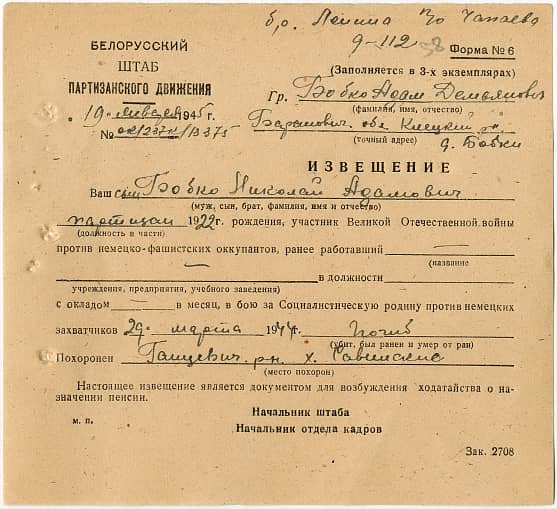 б,о. Ленина п/о Чапаева
9-112
БЕЛОРУССКИЙ
ШТАБ
ПАРТИЗАНСКОГО ДВИЖЕНИЯ
„ 19 „ января 1945 г.
№
Форма № 6
(Заполняется в 3-х экземплярах)
Гр. Бобко Адам Демьянович
(фамилия, имя, отчество)
Баранович. обл Клецкий рн.
(точный адрес)
д. Бобки
ИЗВЕЩЕНИЕ
Ваш сын Бобко Николай Адамович
(муж, сын, брат, фамилия, имя и отчество)
партизан 1922 г. рождения, участник Великой Отечественной войны
(должность в части)
против немецко-фашистских оккупантов, ранее работавший —
(название
— в должности
учреждения, предприятия, учебного заведения)
с окладом — в месяц, в бою за Социалистическую родину против немецких
захватчиков 29 марта 1944 г. погиб
(убит, был ранен и умер от ран)
Похоронен рн. х.
(место похорон)
Настоящее извещение является документом для возбуждения ходатайства о на-
значении пенсии.
Начальник штаба
м. п.
Начальник отдела кадров
Зак. 2708